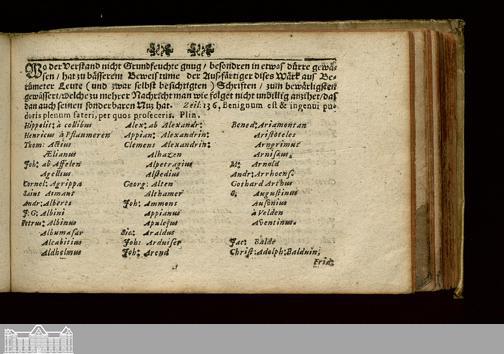 Wo der Verstand nicht Grundfeuchte gnug / besondren in etwas dürre gewä-
sen / hat zu bässerem Beweistume der Ausfärtiger dises Wärk aus Be-
rümeter Leute (und zwar selbst besichtigten) Schriften / zum bewärtigsten
gewässert / welche zu mehrer Nachricht man wie folget nicht unbillig anzihet / daß
dan auch seinen sonderbaren Nuz hat. Zeil. 136. Benignum est & ingenui pu-
doris plenum fateri, per quos profeceris. Plin.
Hippolit: à collibus Alex: ab Alexandr: Bened: Ariamontan
Henricus à Pflaumeren Appian: Alexandrin: Aristoteles
Thom: Actius Clemens Alexandrin: Arngrimus
Ælianus Alhazen Arnisæus.
Joh: ab Affelen Alpetragius M: Arnold
Apellus Alstedius Andr: Arrhoens
Cornel: Agrippa Georg: Alten Gothard Arthus
Saint Amant Althamer S: Augustinus
Andr: Alberts Joh: Ammons Ausonius
J: G: Albini Appianus à Velden
Petrus: Albinus Apulejus Aventinus.
Albumasar Sic: Araldus
Alcabitius Joh: Arduiser Jac: Balde
Aldhelmus Joh: Arend Christ: Adolph: Balduin,